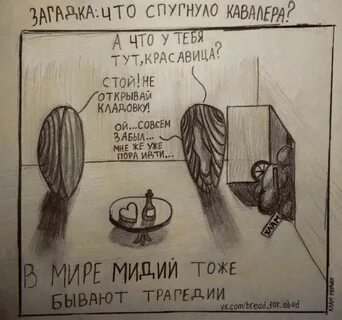 ЗАГАДКА: ЧТО СПУГНУЛО КАВАЛЕРА?
А ЧТО У ТЕБЯ
ТУТ, КРАСАВИЦА?
СТОЙ! НЕ
ОТКРЫВАЙ
КЛАДОВКУ!
ОЙ...СОВСЕМ
ЗАБЫЛ...
МНЕ ЖЕ УЖЕ
ПОРА ИДТИ...
ХЛАМ
В МИРЕ МИДИЙ ТОЖЕ
БЫВАЮТ ТРАГЕДИИ
vk.com/bread_for_obed